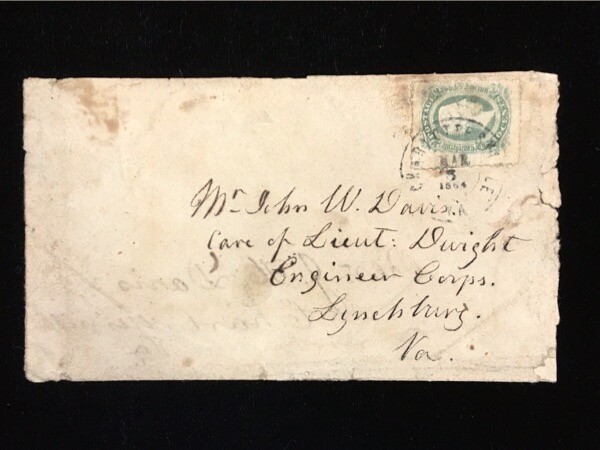 CHARLOTTESVILLE
MAR
5
1864
VA
Mr John W. Davis
Care of Lieut: Dwight
Engineer Corps.
Lynchburg.
Va.